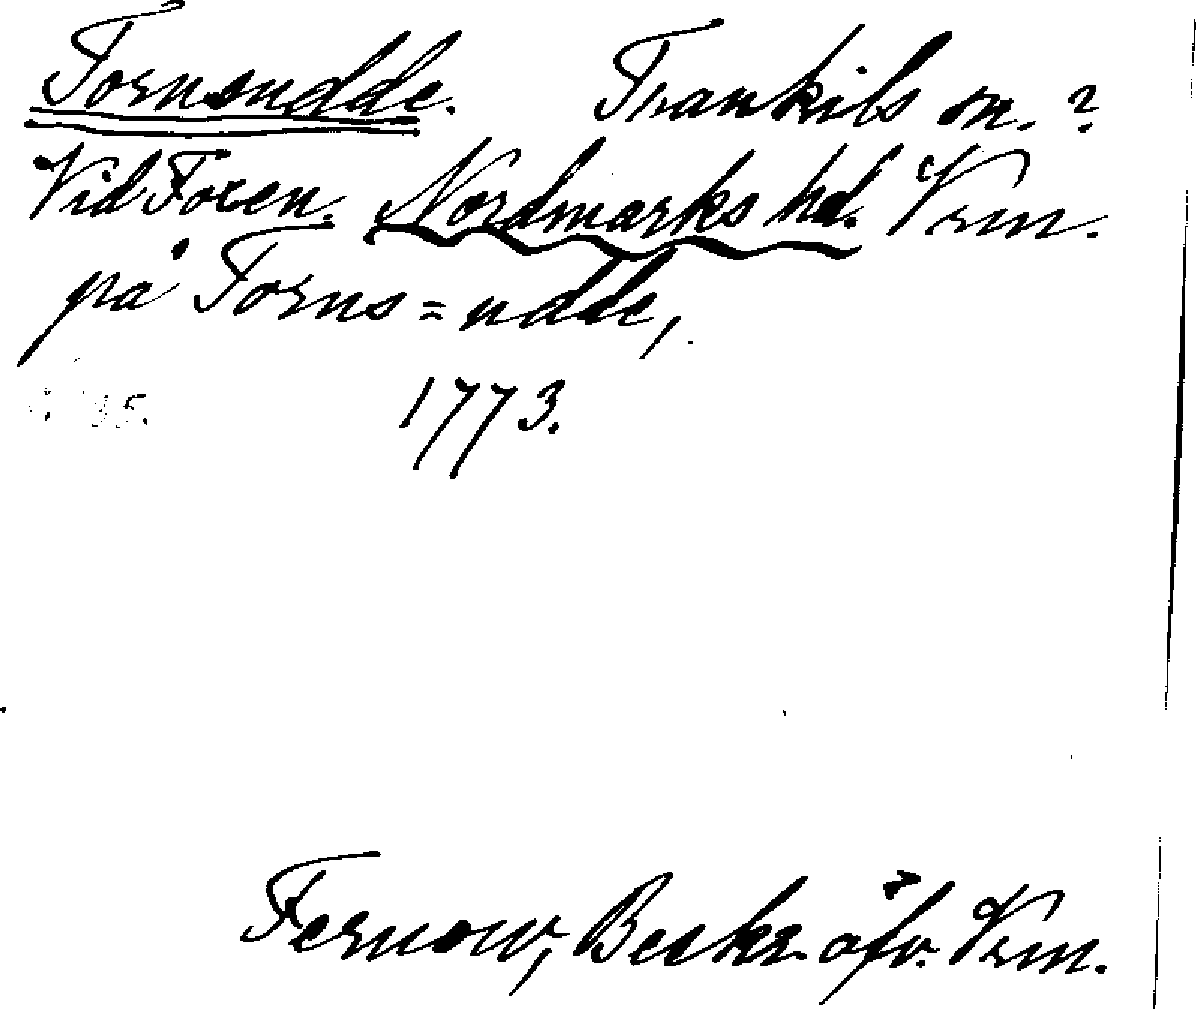 Fornsudde. Trankils sn. ?
Vid Foxen. Nordmarks hd. Vrm.
på Forns=udde,
1773.
Fernow, Beskr. öfv. Vrm.